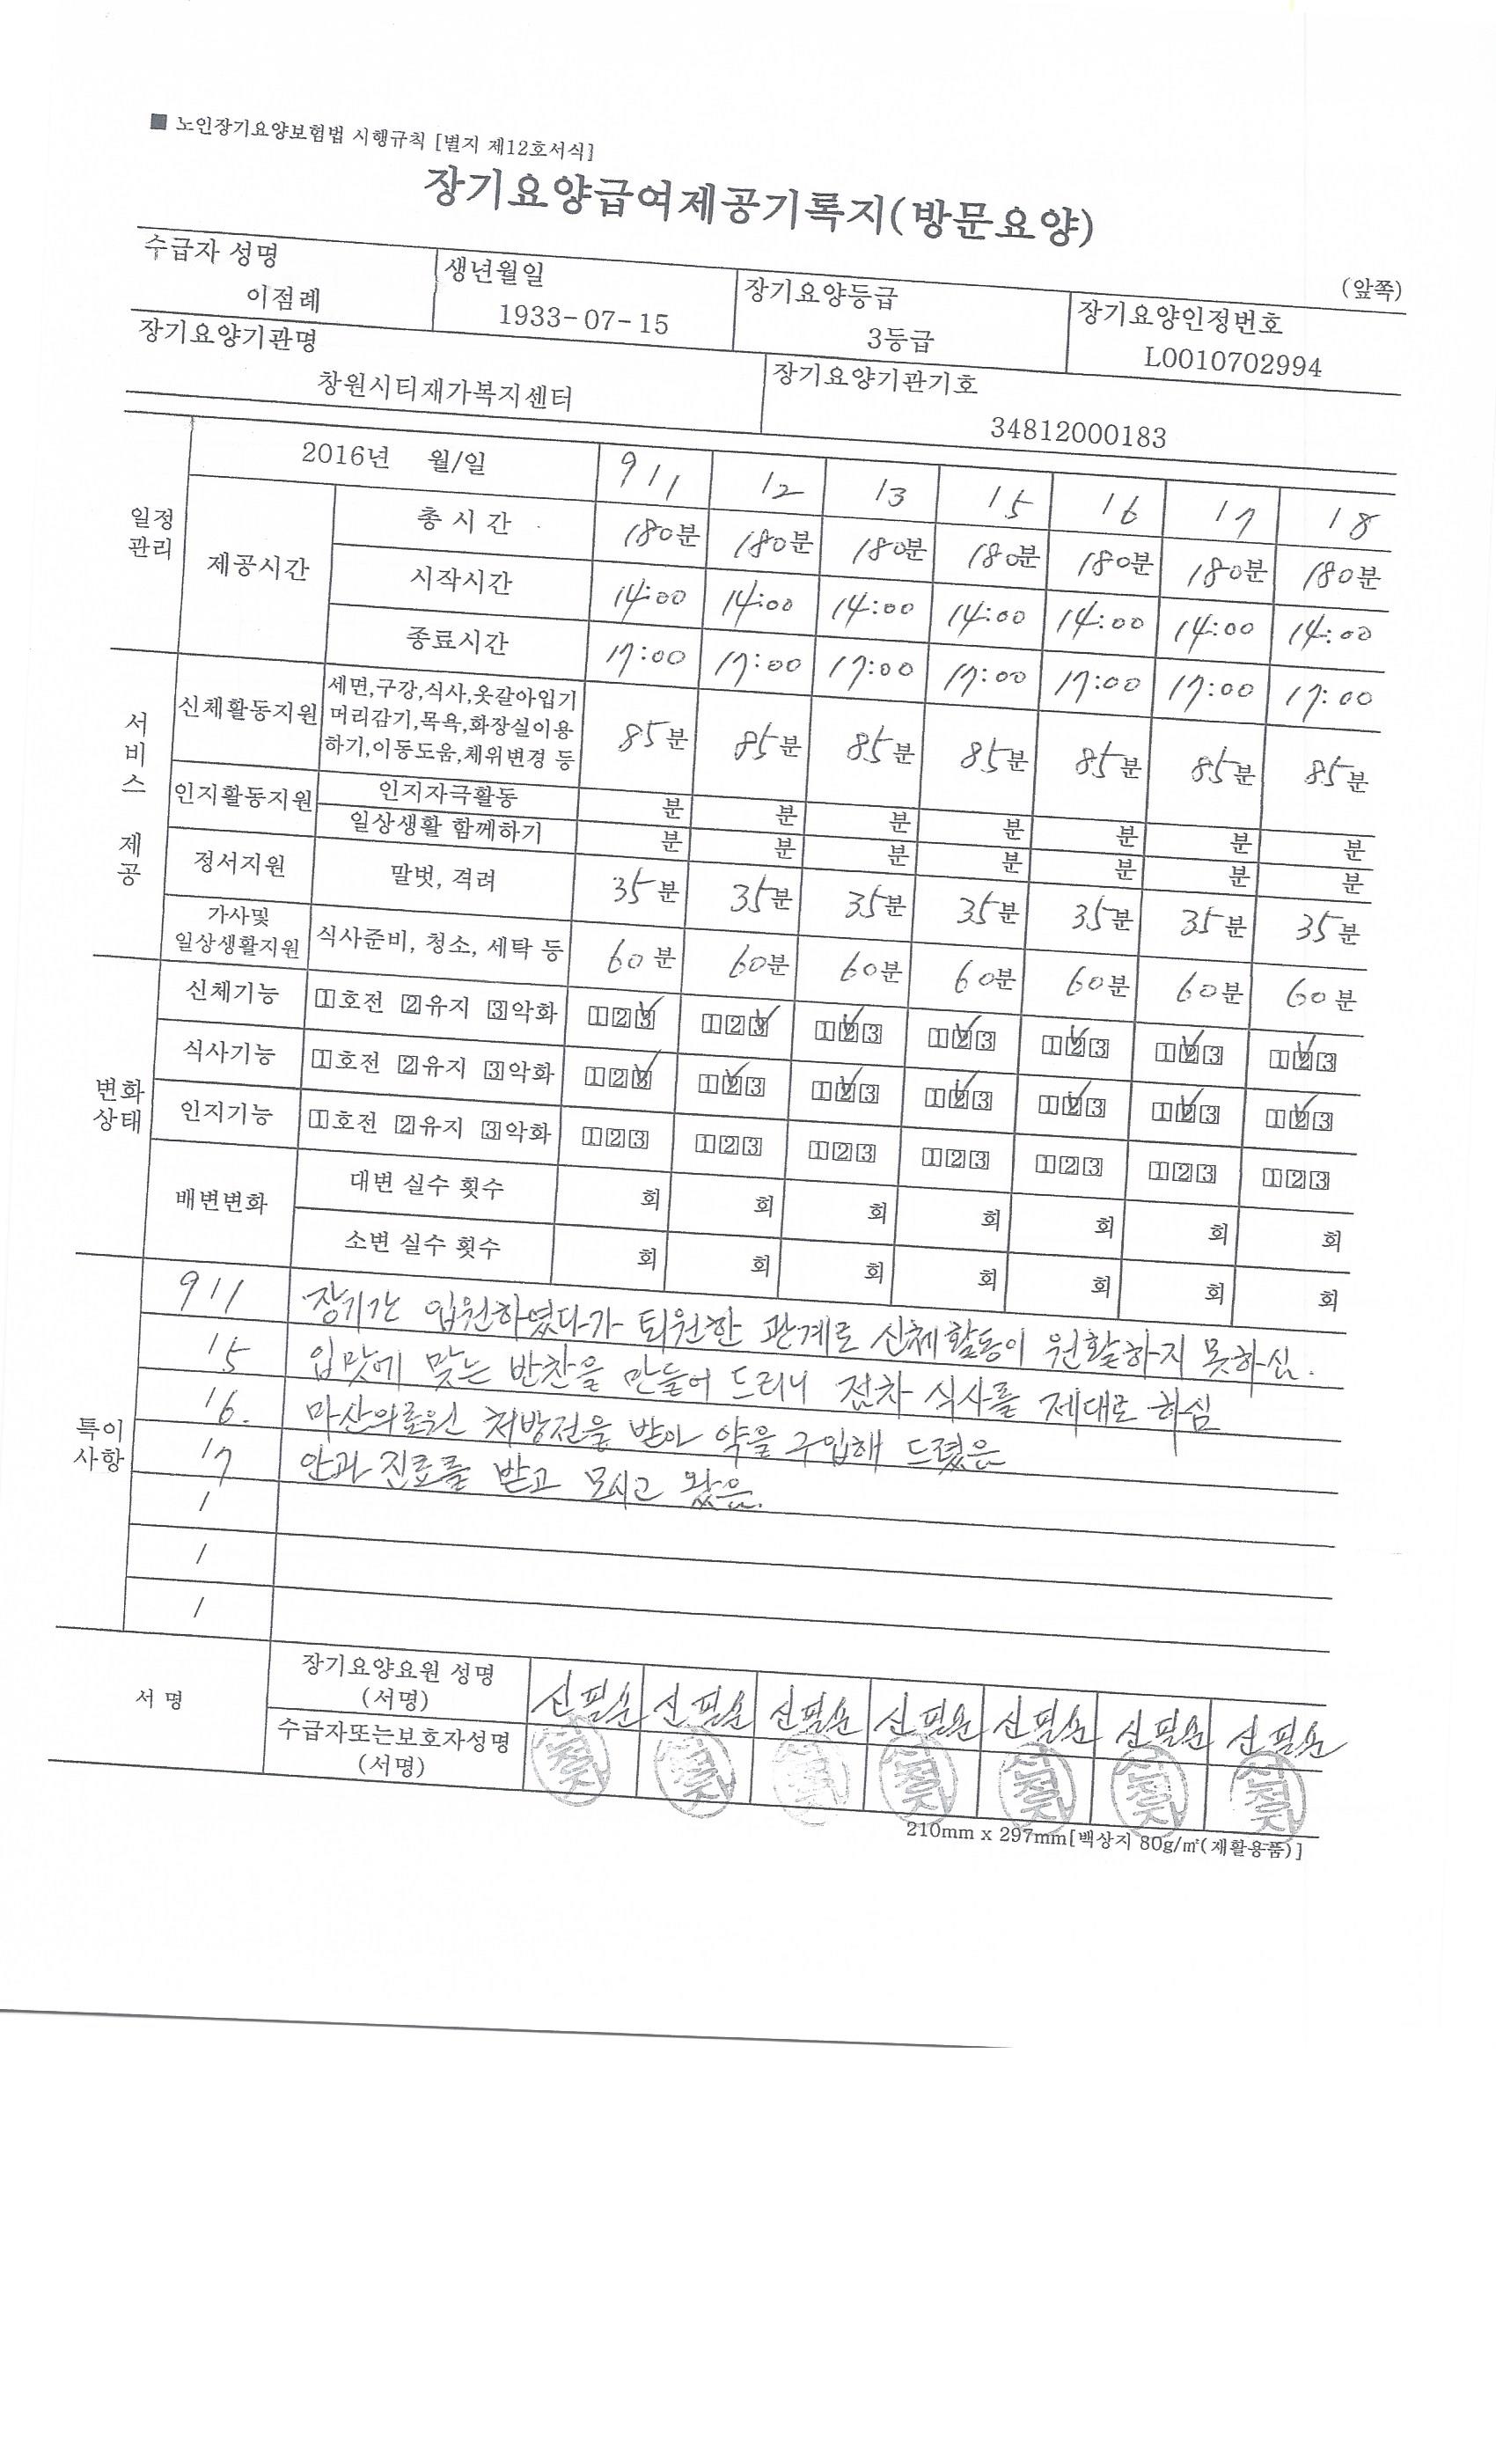 ■ 노인장기요양보험법 시행규칙 [별지 제12호서식]
장기요양급여제공기록지(방문요양)
(앞쪽)
수급자 성명 생년월일 장기요양등급 장기요양인정번호
이점례 1933-07-15 3등급 L0010702994
장기요양기관명 장기요양기관기호
창원시티재가복지센터 34812000183
일정 관리
2016년 월/일 9/1 /2 /3 /5 /6 /7 /8
제공시간
총 시 간 180분 180분 180분 180분 180분 180분 180분
시작시간 14:00 14:00 14:00 14:00 14:00 14:00 14:00
종료시간 17:00 17:00 17:00 17:00 17:00 17:00 17:00
서비스 제공
신체활동지원 세면,구강,식사,옷갈아입기
머리감기,목욕,화장실이용
하기,이동도움,체위변경 등
85분 85분 85분 85분 85분 85분 85분
인지활동지원 인지자극활동 분 분 분 분 분 분 분
일상생활 함께하기 분 분 분 분 분 분 분
정서지원 말벗, 격려 35분 35분 35분 35분 35분 35분 35분
가사및
일상생활지원 식사준비, 청소, 세탁 등 60분 60분 60분 60분 60분 60분 60분
변화 상태
신체기능 1호전 2유지 3악화 123 123 123 123 123 123 123
식사기능 1호전 2유지 3악화 123 123 123 123 123 123 123
인지기능 1호전 2유지 3악화 123 123 123 123 123 123 123
배변변화 대변 실수 횟수 회 회 회 회 회 회 회
소변 실수 횟수 회 회 회 회 회 회 회
특이 사항
9/1 장기간 입원하였다가 퇴원한 관계로 신체활동이 원활하지 못하심.
/5 입맛에 맞는 반찬을 만들어 드리니 점차 식사를 제대로 하심
/6. 마산의료원 처방전을 받아 약을 구입해 드렸음
/7 안과 진료를 받고 모시고 왔음.
/
/
/
서 명
장기요양요원 성명
(서명)
신필순 신필순 신필순 신필순 신필순 신필순 신필순
수급자또는보호자성명
(서명)
210mm x 297mm[백상지 80g/㎡(재활용품)]